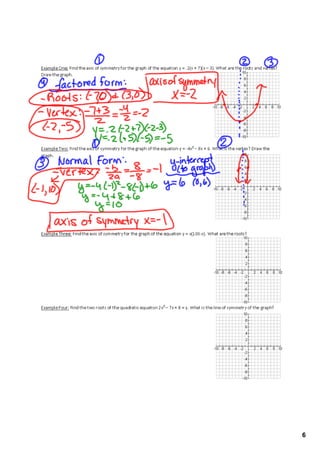 ① ② ③
Example One: Find the axis of symmetry for the graph of the equation y = .2(x + 7)(x – 3). What are the roots and vertex?
Draw the graph.
④ factored form:
axis of symmetry
x=-2
-Roots: (-7,0) + (3,0)
-Vertex: -7+3/2 = -4/2 = -2
(-2,-5)
y=.2(-2+7)(-2-3)
y=.2(+5)(-5)=-5
① ②
Example Two: Find the axis of symmetry for the graph of the equation y = -4x² – 8x + 6. What is the vertex? Draw the
graph.
③ Normal form:
y-intercept
(to graph)
-vertex: -b/2a = 8/-8 = -1
y=6 (0,6)
(-1,10)
y=-4(-1)²-8(-1)+6
y=-4+8+6
y=10
axis of symmetry x=-1
Example Three: Find the axis of symmetry for the graph of the equation y = x(10-x). What are the roots?
Example Four: Find the two roots of the quadratic equation 2x² – 7x + 6 = y. What is the line of symmetry of the graph?
6